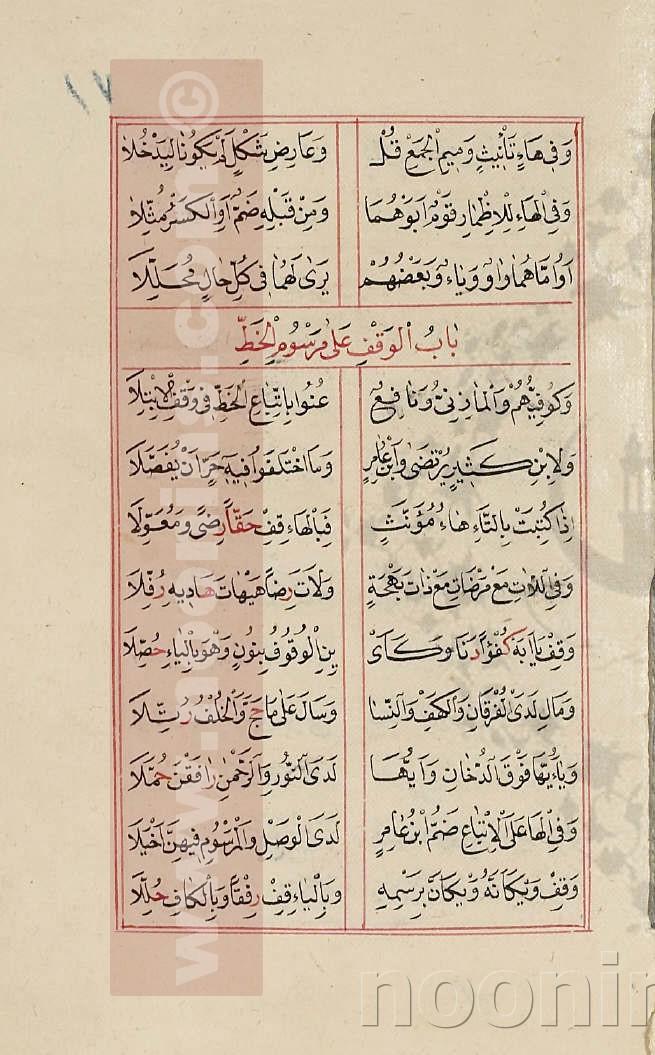 ١٧
وَفِي هَاءِ تَأْنِيثٍ وَمِيمِ الْجَمْعِ قُلْ وَعَارِضِ شَكْلٍ لَمْ يَكُونَا لِيَدْخُلَا
وَفِي الْهَاءِ لِلْإِضْمَارِ قَوْمٌ أَبَوْهُمَا وَمِنْ قَبْلِهِ ضَمٌّ أَوِ الْكَسْرُ مُثِّلَا
أَوُ امَّاهُمَا وَاوٌ وَيَاءٌ وَبَعْضُهُمْ يَرَى لَهُمَا فِي كُلِّ حَالٍ مُحَلِّلَا
بَابُ الْوَقْفِ عَلَى مَرْسُومِ الْخَطِّ
وَكُوفِيُّهُمْ وَالْمَازِنِيُّ وَنَافِعٌ عُنُوا بِاتِّبَاعِ الْخَطِّ فِي وَقْفِ الْابْتِلَا
وَلِابْنِ كَثِيرٍ يُرْتَضَى وَابْنِ عَامِرٍ وَمَا اخْتَلَفُوا فِيهِ حَرٍ أَنْ يُفَصَّلَا
إِذَا كُتِبَتْ بِالتَّاءِ هَاءُ مُؤَنَّثٍ فَبِالْهَاءِ قِفْ حَقًّا رِضًى وَمُعَوِّلَا
وَفِي اللَّاتِ مَعْ مَرْضَاتِ مَعْ ذَاتِ بَهْجَةٍ وَلَاتَ رِضًا هَيْهَاتَ هَادِيهِ رُفِّلَا
وَقِفْ يَا أَبَهْ كُفْؤًا دَنَا وَكَأَيِّنِ الْوُقُوفُ بِنُونٍ وَهْوَ بِالْيَاءِ حُصِّلَا
وَمَالِ لَدَى الْفُرْقَانِ وَالْكَهْفِ وَالنِّسَا وَسَالَ عَلَى مَا حَجَّ وَالْخُلْفُ رُتِّلَا
وَيَا أَيُّهَا فَوْقَ الدُّخَانِ وَأَيُّهَا لَدَى النُّورِ وَالرَّحْمَنِ رَافَقْنَ حُمَّلَا
وَفِي الْهَا عَلَى الْإِتْبَاعِ ضَمَّ ابْنُ عَامِرٍ لَدَى الْوَصْلِ وَالْمَرْسُومُ فِيهِنَّ أَخْيَلَا
وَقِفْ وَيْكَأَنَّهُ وَيْكَأَنَّ بِرَسْمِهِ وَبِالْيَاءِ قِفْ رِفْقًا وَبِالْكَافِ حُلِّلَا
www.noorlib.com ©